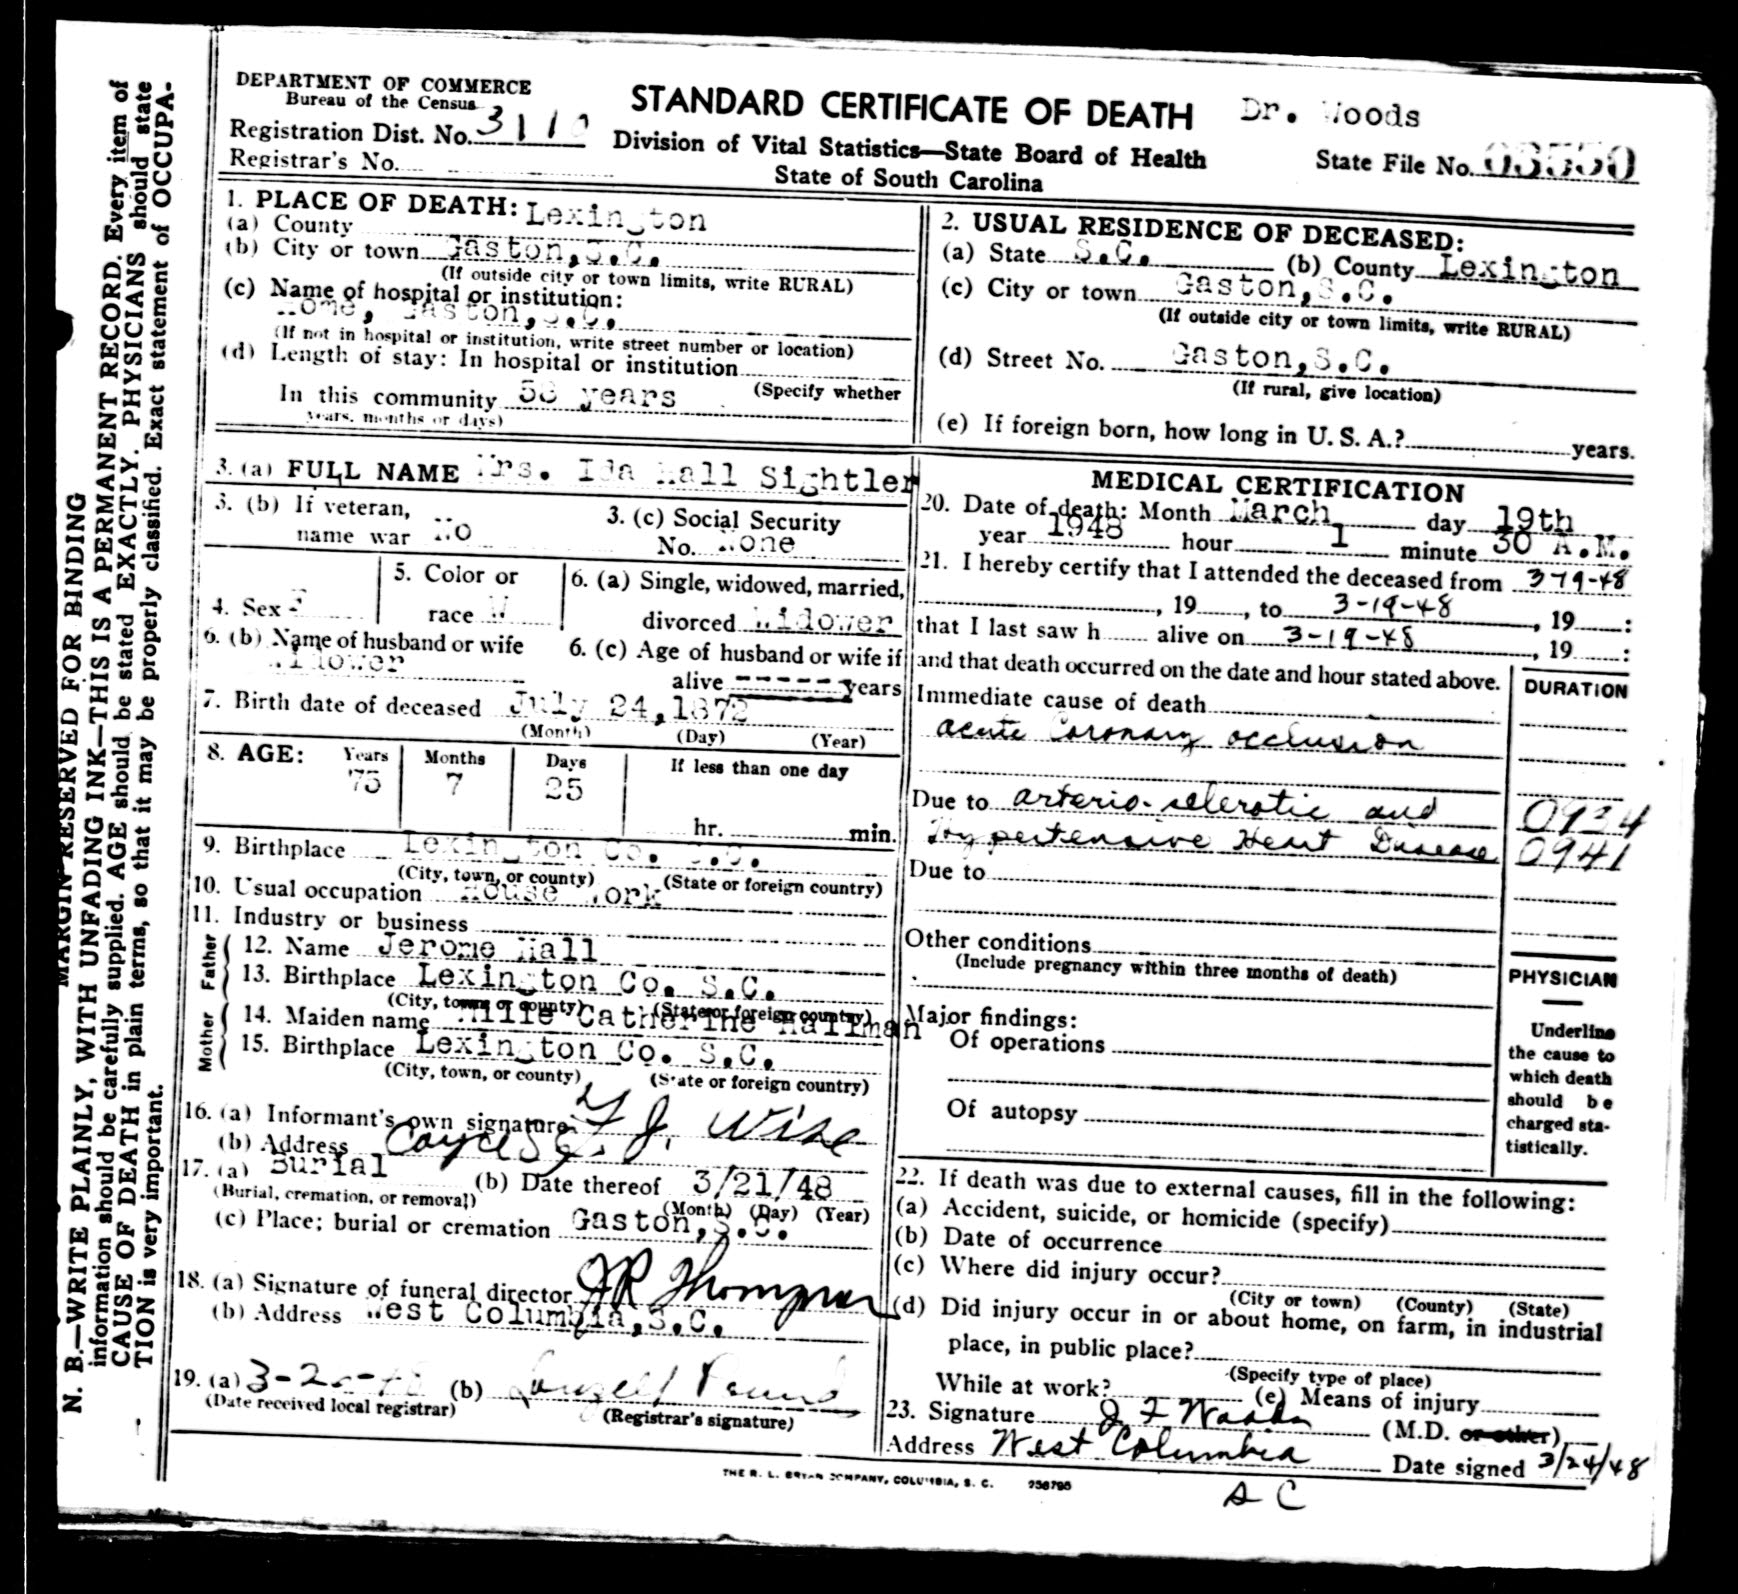 DEPARTMENT OF COMMERCE
Bureau of the Census
Registration Dist. No. 3110
Registrar's No.
STANDARD CERTIFICATE OF DEATH
Division of Vital Statistics—State Board of Health
State of South Carolina
Dr. Woods
State File No. 03550
1. PLACE OF DEATH:
(a) County Lexington
(b) City or town Gaston, S.C.
(If outside city or town limits, write RURAL)
(c) Name of hospital or institution:
Home, Gaston, S.C.
(If not in hospital or institution, write street number or location)
(d) Length of stay: In hospital or institution
(Specify whether
In this community 58 years
years, months or days)
2. USUAL RESIDENCE OF DECEASED:
(a) State S.C. (b) County Lexington
(c) City or town Gaston, S.C.
(If outside city or town limits, write RURAL)
(d) Street No. Gaston, S.C.
(If rural, give location)
(e) If foreign born, how long in U. S. A.? years.
3. (a) FULL NAME Mrs. Ida Hall Sightler
3. (b) If veteran,
name war No
3. (c) Social Security
No. None
4. Sex F
5. Color or
race W
6. (a) Single, widowed, married,
divorced Widower
6. (b) Name of husband or wife
Widower
6. (c) Age of husband or wife if
alive ------ years
7. Birth date of deceased July 24, 1872
(Month) (Day) (Year)
8. AGE: Years Months Days If less than one day
75 7 25
hr. min.
9. Birthplace Lexington Co. S.C.
(City, town, or county) (State or foreign country)
10. Usual occupation House Work
11. Industry or business
Father
12. Name Jerome Hall
13. Birthplace Lexington Co. S.C.
(City, town or county) (State or foreign country)
Mother
14. Maiden name Catherine Hallman
15. Birthplace Lexington Co. S.C.
(City, town, or county) (State or foreign country)
16. (a) Informant's own signature J. Wise
(b) Address Cayce S C
17. (a) Burial (b) Date thereof 3/21/48
(Burial, cremation, or removal) (Month) (Day) (Year)
(c) Place; burial or cremation Gaston, S.C.
18. (a) Signature of funeral director J R Thompson
(b) Address West Columbia, S.C.
19. (a) (b)
(Date received local registrar) (Registrar's signature)
MEDICAL CERTIFICATION
20. Date of death: Month March day 19th
year 1948 hour 1 minute 30 A.M.
21. I hereby certify that I attended the deceased from 3-19-48
, 19 , to 3-19-48 , 19 :
that I last saw h alive on 3-19-48 , 19 :
and that death occurred on the date and hour stated above.
DURATION
Immediate cause of death
acute Coronary occlusion
Due to arterio-sclerotic and 0934
Hypertensive Heart Disease 0941
Due to
Other conditions
(Include pregnancy within three months of death)
Major findings:
Of operations
Of autopsy
PHYSICIAN
Underline
the cause to
which death
should be
charged sta-
tistically.
22. If death was due to external causes, fill in the following:
(a) Accident, suicide, or homicide (specify)
(b) Date of occurrence
(c) Where did injury occur?
(City or town) (County) (State)
(d) Did injury occur in or about home, on farm, in industrial
place, in public place?
(Specify type of place)
While at work? (e) Means of injury
23. Signature J F Woods (M.D. or other)
Address West Columbia Date signed 3/24/48
S C
THE R. L. BRYAN COMPANY, COLUMBIA, S. C. 256795
MARGIN RESERVED FOR BINDING
N. B.—WRITE PLAINLY, WITH UNFADING INK—THIS IS A PERMANENT RECORD. Every item of
information should be carefully supplied. AGE should be stated EXACTLY. PHYSICIANS should state
CAUSE OF DEATH in plain terms, so that it may be properly classified. Exact statement of OCCUPA-
TION is very important.